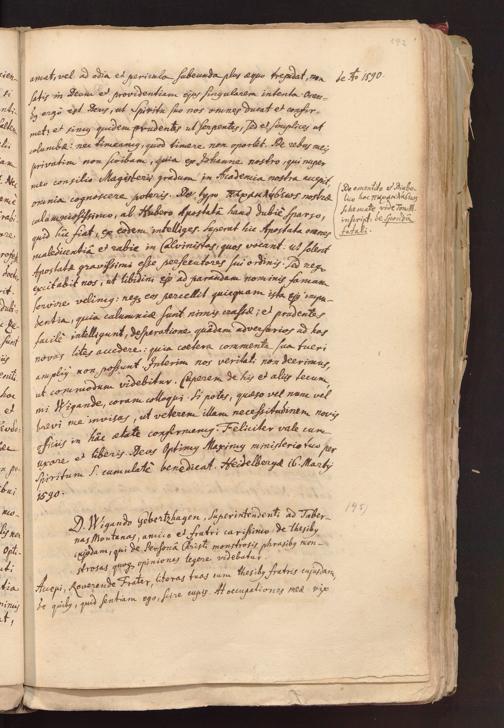 192
amat, vel ad odia et pericula subeunda plus aequo trepidat, non
satis in Deum et providentiam ejus singularem intenta. Oran-
dus ergo est Deus, ut Spiritu suo nos omnes ducat et confir-
met; et sinat quidem prudentes ut serpentes, sed et simplices ut
columbae: nec timeamus, quod timere non oportet. De rebus meis
privatim non scribam, quia ex Johanne nostro, qui nuper
meo consilio Magisterii gradum in Academia nostra accepit,
omnia cognoscere poteris. De typo παραπλήξεως nostrae
calumniosissimo, ab Hubero Apostata haud dubie sparso,
quid hic fiat, ex eodem intelliges. Superat hic Apostata omnes
maledicentia et rabie in Calvinistas, quos vocant: ut solent
Apostatae gravissimi esse persecutores sui ordinis. Sed neq
excitabit nos, ut libidini ejus ad parandam nominis famam
servire velimus: neq eos percellit quicquam ista ejus impu-
dentia, quia calumniae sunt nimis crassae; et prudentes
facile intelligunt, desperatione quadam adversarios ad has
novas lites accedere: quia caetera commenta sua tueri
amplius non possunt. Interim nos veritati non deerimus,
ut commodum videbitur. Cuperem de his et aliis tecum,
mi Wigande, coram colloqui. Si potes, quaeso vel nunc vel
brevi me invisas, ut veterem illam necessitudinem novis
officiis in hac aetate confirmemus. Feliciter vale cum
uxore et liberis. Deus Optimus Maximus ministerio tuo per
Spiritum S. cumulate benedicat. Heidelbergae 16. Martii
1590.
de Aō 1590.
De
hoc
schemate vide
inscript. de
fatali.
195)
D. Wigando Gebertzhagen, Superintendenti ad Taber-
nas Montanas, amico et fratri carissimo de thesibus
cujusdam, qui de Persona Christi monstrosis phrasibus mon-
strosas quoq opiniones tegere videbatur.
Accepi, Reverende Frater, literas tuas cum thesibus fratris cujusdam,
de quibus, quid sentiam ego, scire cupis. At occupationes meae vix